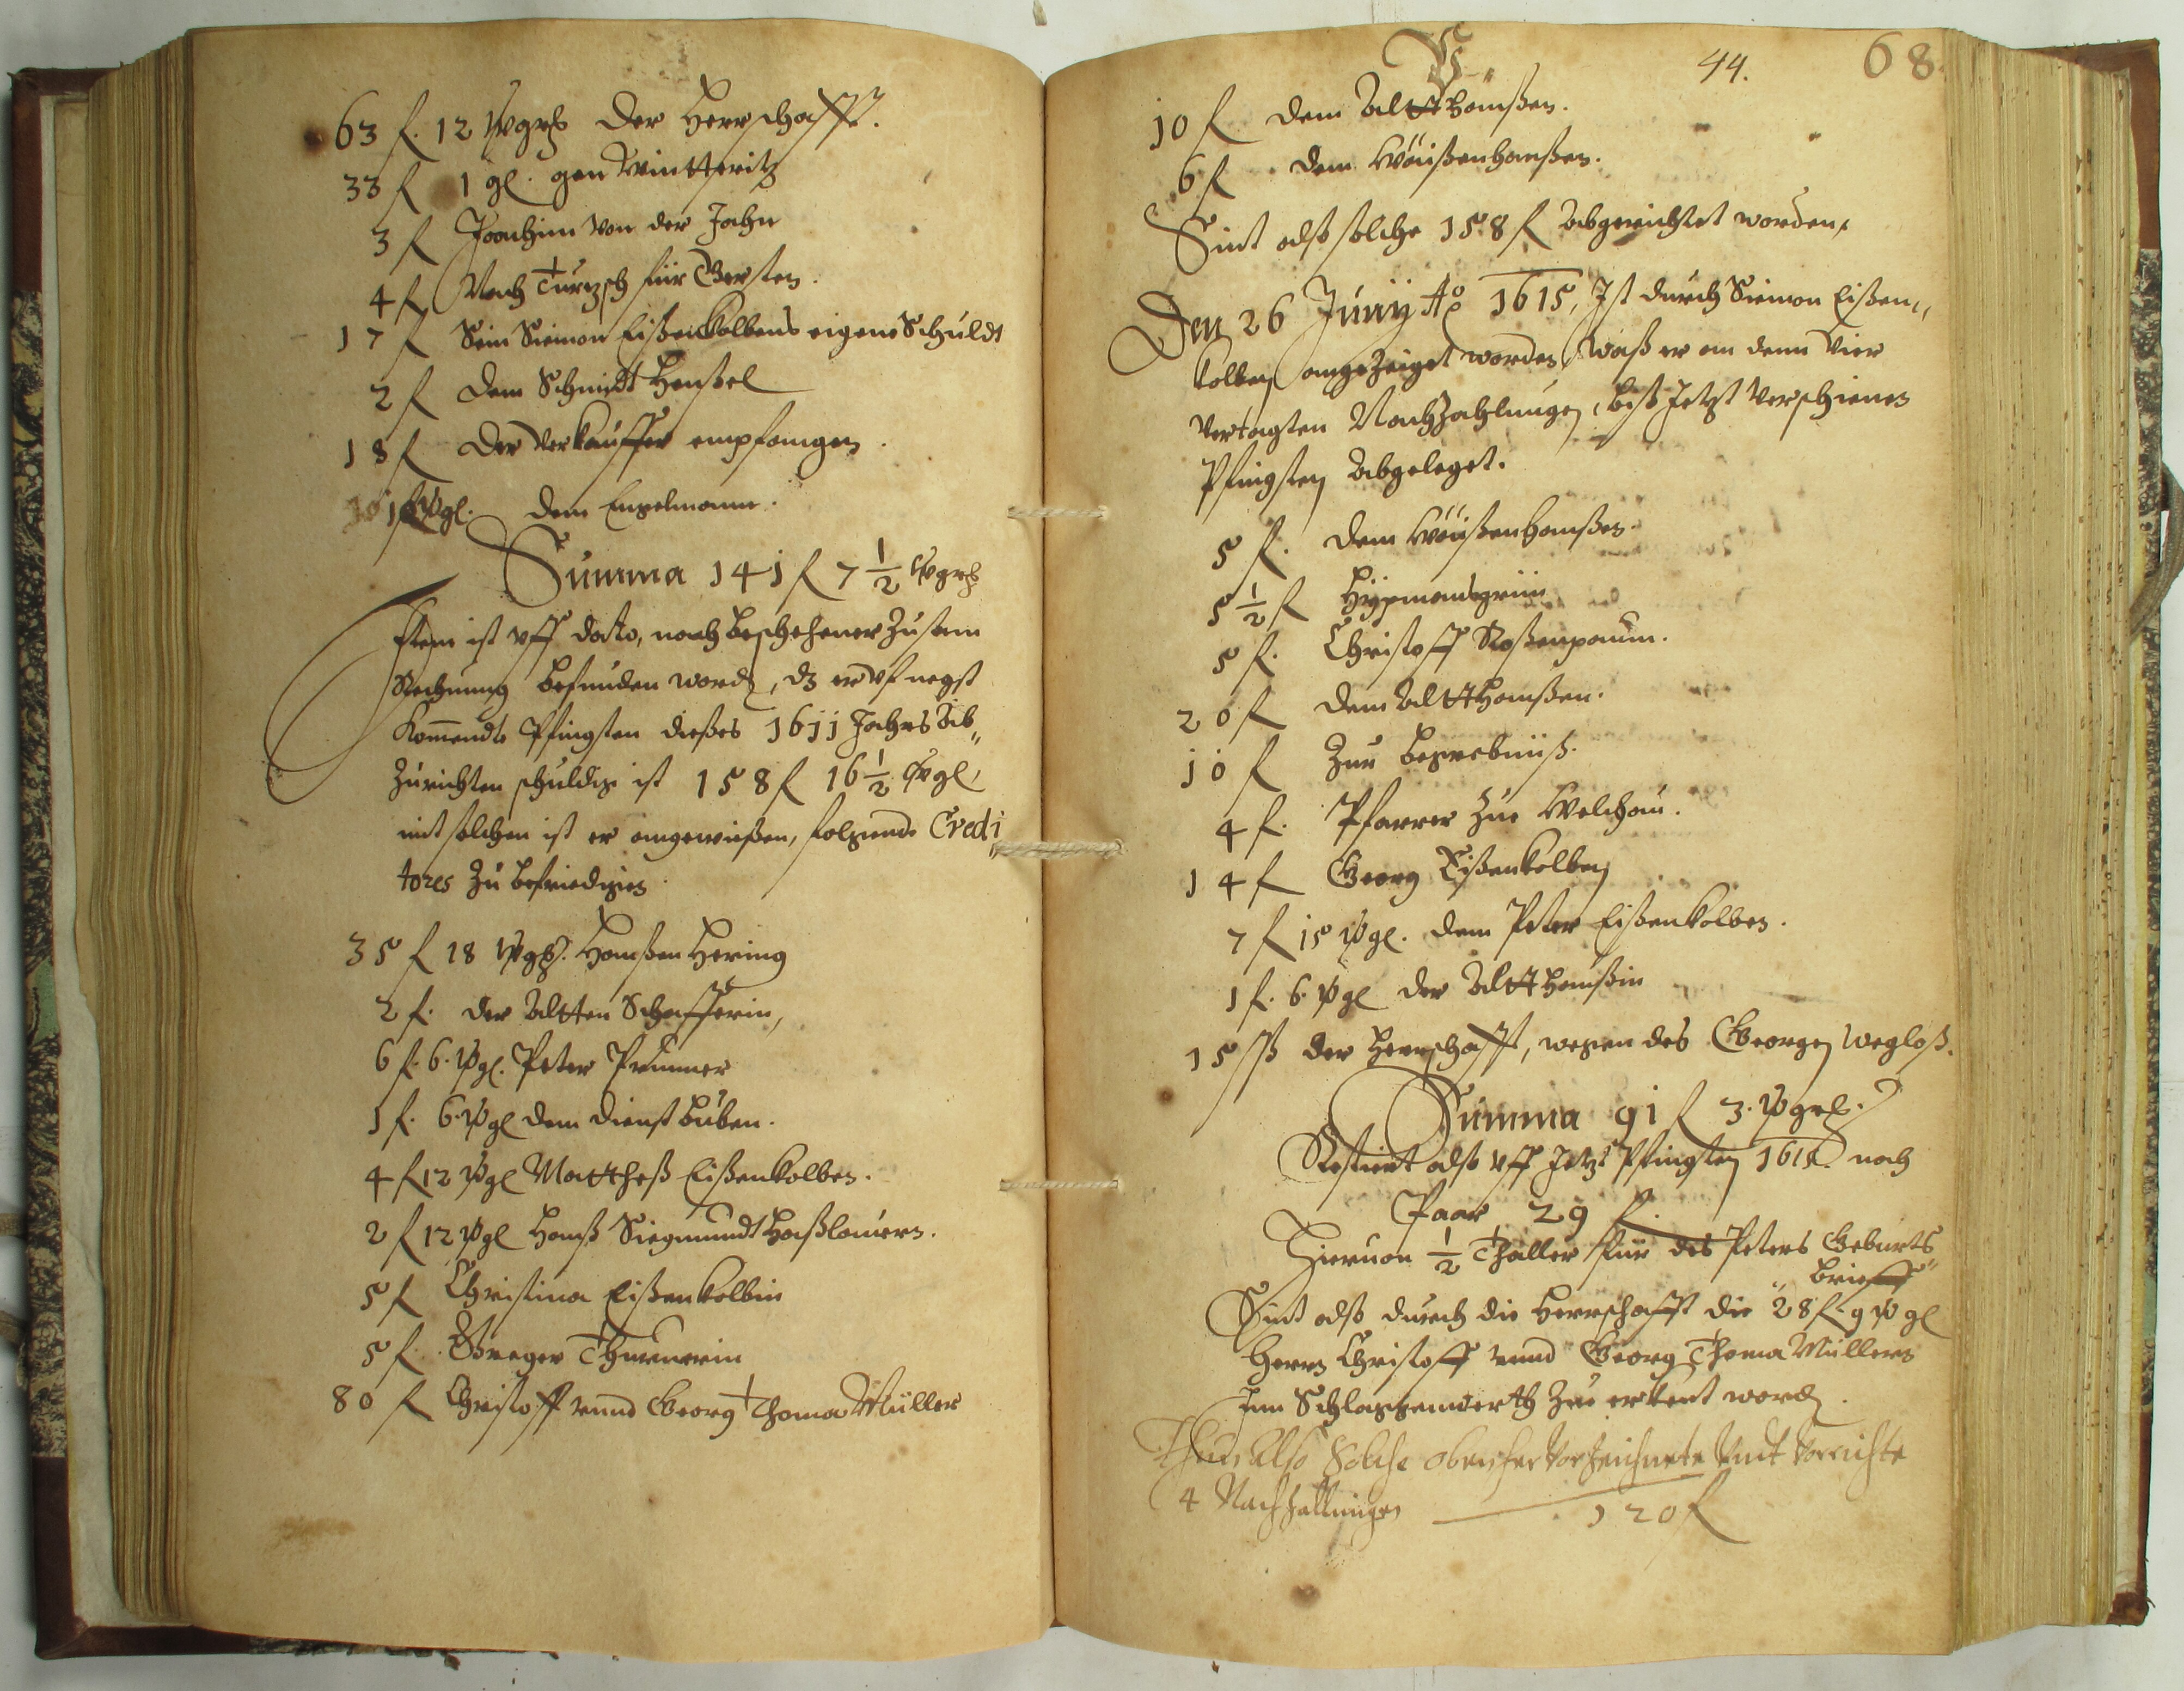 63 f. 12 wgrß der Herrschafft.
33 f 1 gl. gen Wintteritz
3 f Joachim von der Jahn
4 f Nach Turzsch für Gersten.
17 f Sein Siemon Eißenkolbens eigene Schuldt
2 f dem Schmidt Henßel
18 f der Verkauffer empfangen.
wgl. dem Engelmann.
Summa 141 f 7 1/2 wgrß
Item ist vff dato, nach beschehener Zusam
Rechnung befunden word, dz er vf negst
Komendte Pfingsten dießes 1611 Jahrs Ab„
Zurichten schuldig ist 158 f 16 1/2 wgl,
mit solchen ist er angewießen, folgende Credi„
tores Zu befriedigen.
35 f 18 wgß. Hanßen Hering
2 f. der Altten Schafferin,
6 f. 6. wgl. Peter Prunner
1 f. 6. wgl dem dienst buben.
4 f 12 wgl Mattheß Eißenkolben.
2 f 12 wgl Hanß Siegmundt Haßlauern.
5 f Christina Eißenkolbin
5 f. Greger Thurnerin
80 f Christoff vnnd Georg Thoma Müller
44. 68
10 f dem Altt Hanßen.
6 f dem Weißenhanßen.
Sint alß solche 158 f Abgerichtet worden,
Den 26 Junij Ao 1615, Ist durch Siemon Eißen„
kolben angezeiget worden, waß er an denn Vier
Vertagten Nachzahlungen, biß Jetzt Verschienen
Pfingsten Abgeleget.
5 f. dem Weißenhanßen.
5 1/2 f Hyemandsgrün
5 f. Christoff Roßenpaum.
20 f dem Altt Hanßen.
10 f Zur begrebnüß.
4 f. Pfarrer Zue Welchau.
14 f Georg Eißenkolben
7 f 15 wgl. dem Peter Eißenkolben.
1 f. 6. wgl der Altt Hanßin
15 ß der Herrschafft, wegen des Georgen wegloß.
Summa 91 f 3. wgrl.
Restiert alß vff Jetzt Pfingsten 1615. noch
Paar 29 f.
Hieruon 1/2 Thaller für des Peters Geburts„
brieff
Sint alß durch die Herrschafft die 28 f. 9 wgl
Herrn Christoff vnnd Georg Thoma Müllern
Inn Schlaggenwerth Zue erkent word.
Thun Also Solche obenher Vorzeichnete Vndt Vorrichte
4 Nachzallungen 120 f